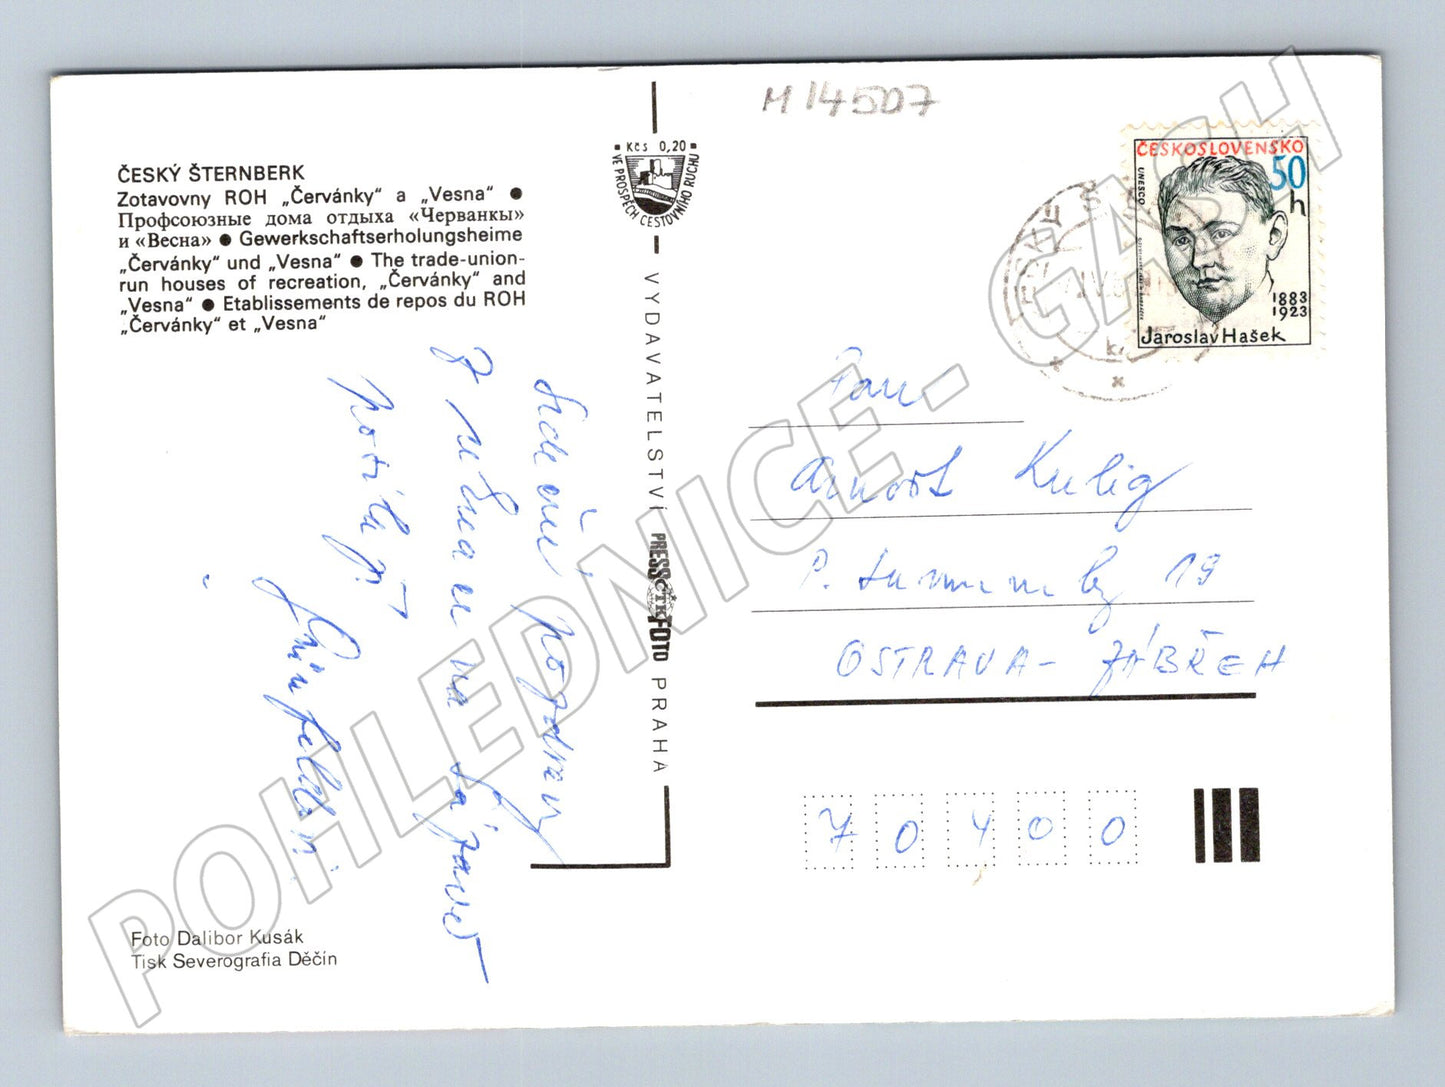 M 14507
ČESKÝ ŠTERNBERK
Zotavovny ROH „Červánky“ a „Vesna“ ●
Профсоюзные дома отдыха «Черванкы»
и «Весна» ● Gewerkschaftserholungsheime
„Červánky“ und „Vesna“ ● The trade-union-
run houses of recreation, „Červánky“ and
„Vesna“ ● Etablissements de repos du ROH
„Červánky“ et „Vesna“
Srdečný pozdrav
z
na Sázavě
Foto Dalibor Kusák
Tisk Severografia Děčín
Kčs 0,20
VE PROSPĚCH CESTOVNÍHO RUCHU
VYDAVATELSTVÍ PRESSFOTO PRAHA
ČTK
ČESKOSLOVENSKO
50 h
UNESCO
1883
1923
Jaroslav Hašek
Pan
Arnošt Kulig
P. 19
OSTRAVA - ZÁBŘEH
70400
POHLEDNICE - GASH